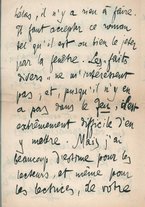 hélas, il n'y a rien à faire.
Il faut accepter ce roman
tel qu'il est ou bien le jeter
par la fenêtre. Les faits
divers ne m'intéressent
pas, et puisqu'il n'y en
a pas dans le Jeu, c'est
extrêmement difficile d'en
y mettre. Mais j'ai
beaucoup d'estime pour les
lecteurs, et même pour
les lectrices, de votre